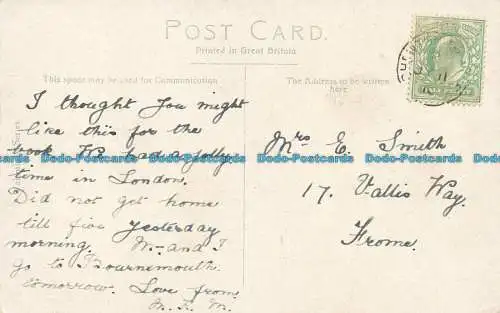 POST CARD.
Printed in Great Britain
This space may be used for Communication
The Address to be written here
I thought you might
like this for the
book. We had a jolly
time in London.
Did not get home
till five yesterday
morning. W- and I
go to Bournemouth
tomorrow. Love from
Mrs E. Smith
17. Vallis Way.
Frome.
Dodo-Postcards Dodo-Postcards Dodo-Postcards Dodo-Postcards